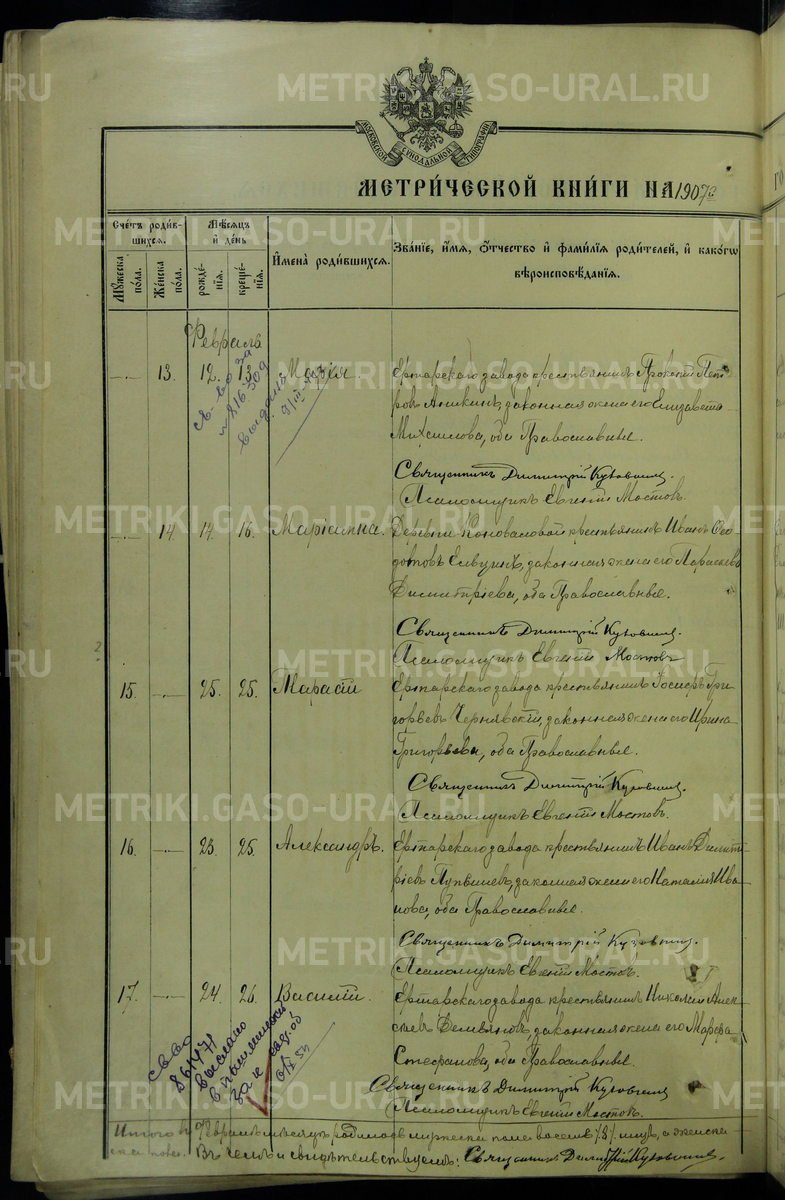 METRIKI.GASO-URAL.RU
МОСКОВСКОЙ СѴНОДАЛЬНОЙ ТИПОГРАФІИ
МЕТРИ́ЧЕСКОЙ КНИ́ГИ НА 1907 г.
Счётъ роди́вшихся.
Мѣ́сяцъ и҆ де́нь
И҆мена̀ роди́вшихся.
Зва́нїе, и҆́мя, ѻ҆́тчество и҆ фами́лїѧ роди́телей, и҆ како́гѡ вѣроисповѣ́данїѧ.
Мꙋ́жеска по́ла.
Же́нска по́ла.
рожде́нїѧ.
креще́нїѧ.
Февраль
13. 12. 13. Марія. Ертарскаго завода крестьянинъ Прокопій Пет-
ровъ Аникинъ, законная жена его Елизавета
Михаилова, оба Православные.
Священникъ Димитрій
Псаломщикъ Евгеній Мостовъ.
14 14. 16. Маріамна. Деревни Коноваловой крестьянинъ Иванъ Ѳео-
законная жена его Параскева
Димитріева, оба Православные.
Священникъ Димитрій
Псаломщикъ Евгеній Мостовъ
15. 25. 25. Тарасій Ертарскаго завода крестьянинъ Іосифъ Гри-
горьевъ Чернявскій, законная жена его Ирина
Григорьева, оба Православные.
Священникъ Димитрій
Псаломщикъ Евгеній Мостовъ.
16. 23. 25. Александръ. Ертарскаго завода крестьянинъ Иванъ Димит-
ріевъ законная жена его Наталія Ива-
нова, оба Православные.
Священникъ Димитрій
Псаломщикъ Евгеній Мостовъ.
17. 24. 26. Василій. Ертарскаго завода крестьянинъ Николай Алек-
сѣевъ Демьяновъ, законная жена его Марѳа
Стефанова, оба Православные.
Священникъ Димитрій
Псаломщикъ Евгеній Мостовъ.
Итого въ Февралѣ мѣсяцѣ родилось мужеска пола восемь /8/ а женска
Въ чемъ и свидѣтельствуемъ: Священникъ Димитрій